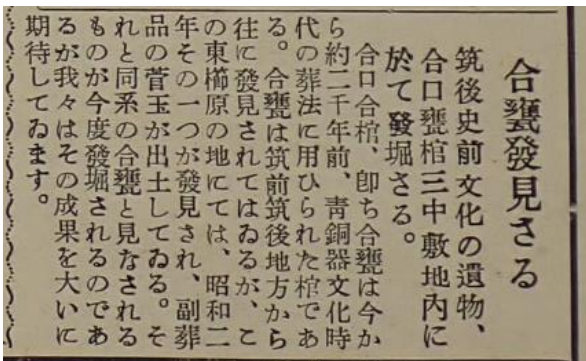 合甕發見さる
筑後史前文化の遺物、
合口甕棺三中敷地内に
於て發掘さる。
合口合棺、卽ち合甕は今か
ら約二千年前、靑銅器文化時
代の葬法に用ひられた棺であ
る。合甕は筑前筑後地方から
往に發見されてはゐるが、こ
の東櫛原の地にては、昭和二
年その一つが發見され、副葬
品の菅玉が出土してゐる。そ
れと同系の合甕と見なされる
ものが今度發掘されるのであ
るが我々はその成果を大いに
期待してゐます。